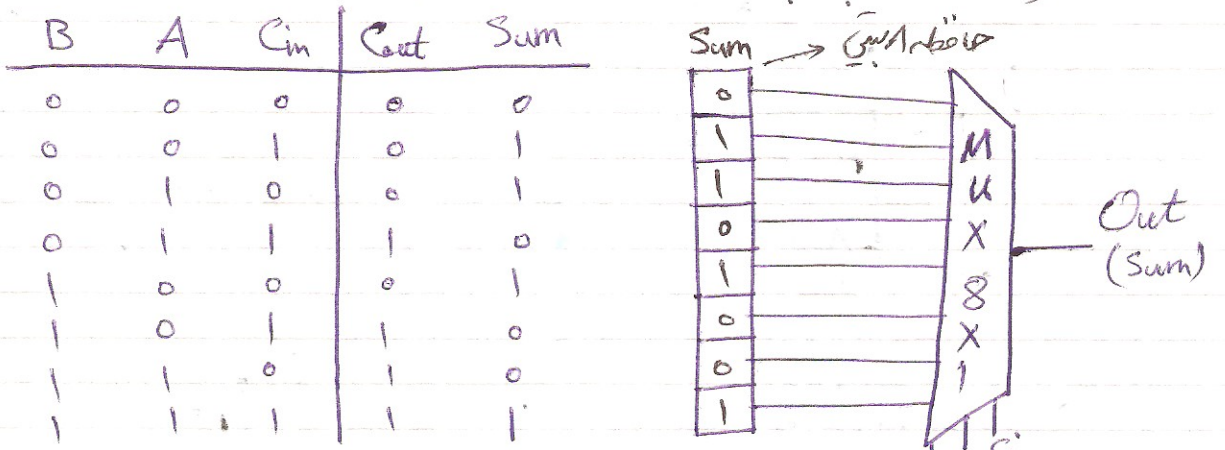 B A Cin Cout Sum
0 0 0 0 0
0 0 1 0 1
0 1 0 0 1
0 1 1 1 0
1 0 0 0 1
1 0 1 1 0
1 1 0 1 0
1 1 1 1 1
Sum → حافظه
0
1
1
0
1
0
0
1
M
U
X
8
X
1
Out
(Sum)